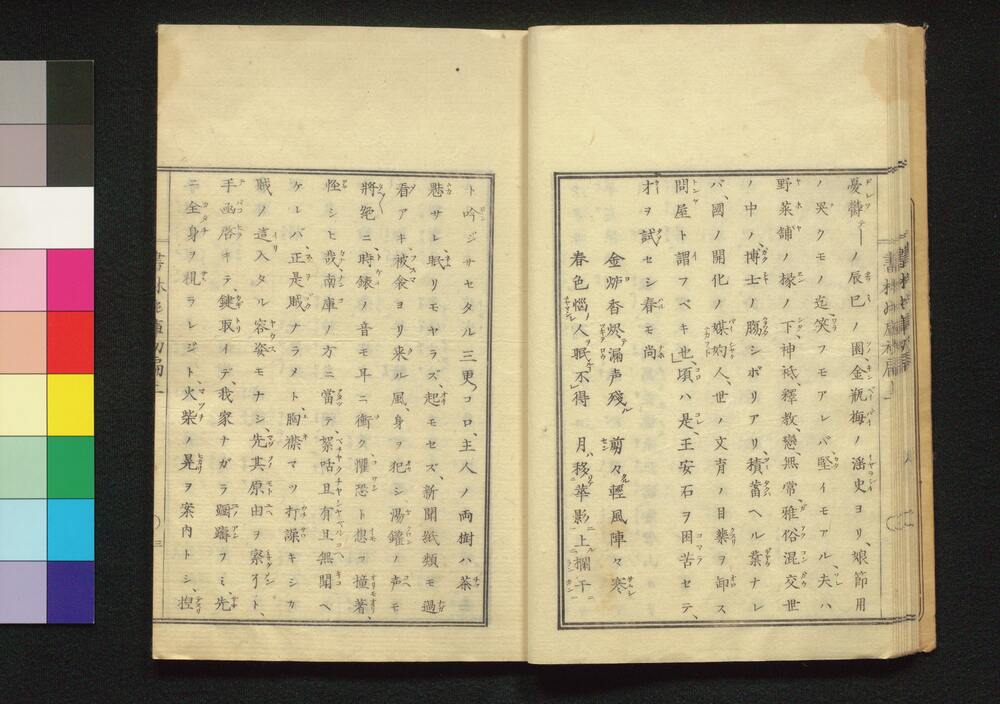 憂欝テーノ辰巳ノ園金瓶梅ノ滛史ヨリ、娘節用
ノ哭クモノ迄、笑フモアレバ堅イモアル、夫ハ
野菜舗ノ椽ノ下、神祇釋教、戀無常雅俗混交世
ノ中ノ、博士ノ膓シボリアリ、積蓄ヘル葉ナレ
バ、國ノ開化ノ媒妁人、世ノ文盲ノ目藥ヲ卸ス
問屋ト謂フベキ也」頃ハ是、王安石ヲ困苦セテ、
才ヲ試セシ春モ尚
金炉香烬漏声殘 剪々輕風陣々寒
春色惱人眠不得 月移華影上欄干
ト吟ジサセタル三更コロ、主人ノ両樹ハ茶
ニサレ、眠リモヤラズ、起モセズ、新聞紙類モ過
看アキ、被衾ヨリ来ル風、身ヲ犯シ湯鑵ノ声モ
將絶ニ、時錶ノ音モ耳ニ衝ク、懼恐ト想フ撞着、
怪シヒ哉、南庫ノ方ニ當テ、絮咕且有且無聞ヘ
ケレバ、正是賊ナラメト、胸襟マツ打澡キシガ
賊ノ這入タル容姿モナシ、先其原由ヲ察ント、
手函啓キテ、鍵取イデ、我家ナガラ躡ヲフミ、先
ニ全身ヲ視ラレジト、火柴ノ晃ヲ案内トシ、捏